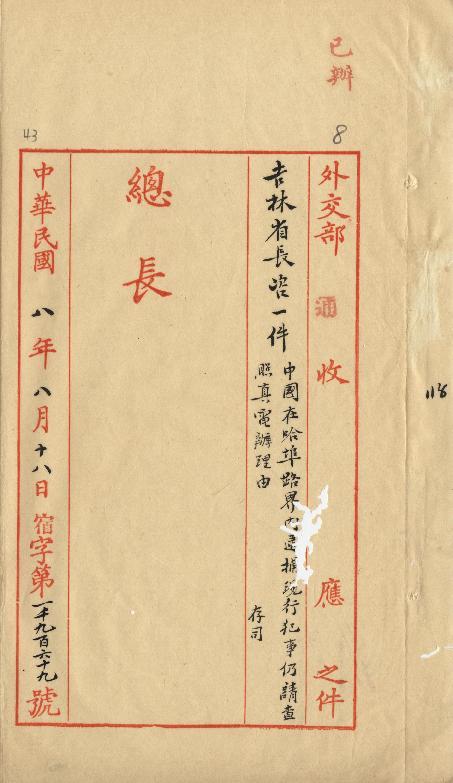 已辦
8
43
外交部 通 收 應 之件
吉林省長咨一件
中國在哈埠路界內逮捕現行犯事仍請查
照真電辦理由
存司
總長
中華民國八年八月十八日宿字第一千九百六十九號
118